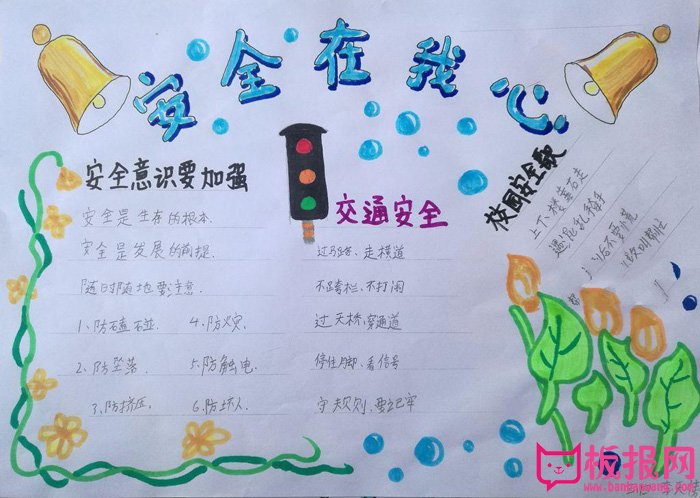 安全在我心
安全意识要加强
安全是生存的根本.
安全是发展的前提.
随时随地要注意.
1、防磕碰 4、防火灾
2、防坠落 5、防触电.
3、防挤压 6、防坏人
交通安全
过马路、走横道
不跨栏、不打闹
过天桥、穿通道
停住脚、看信号
守规则、要记牢
校园安全歌
上下楼靠右走
遇混乱
板报网
www.banbaowang.com